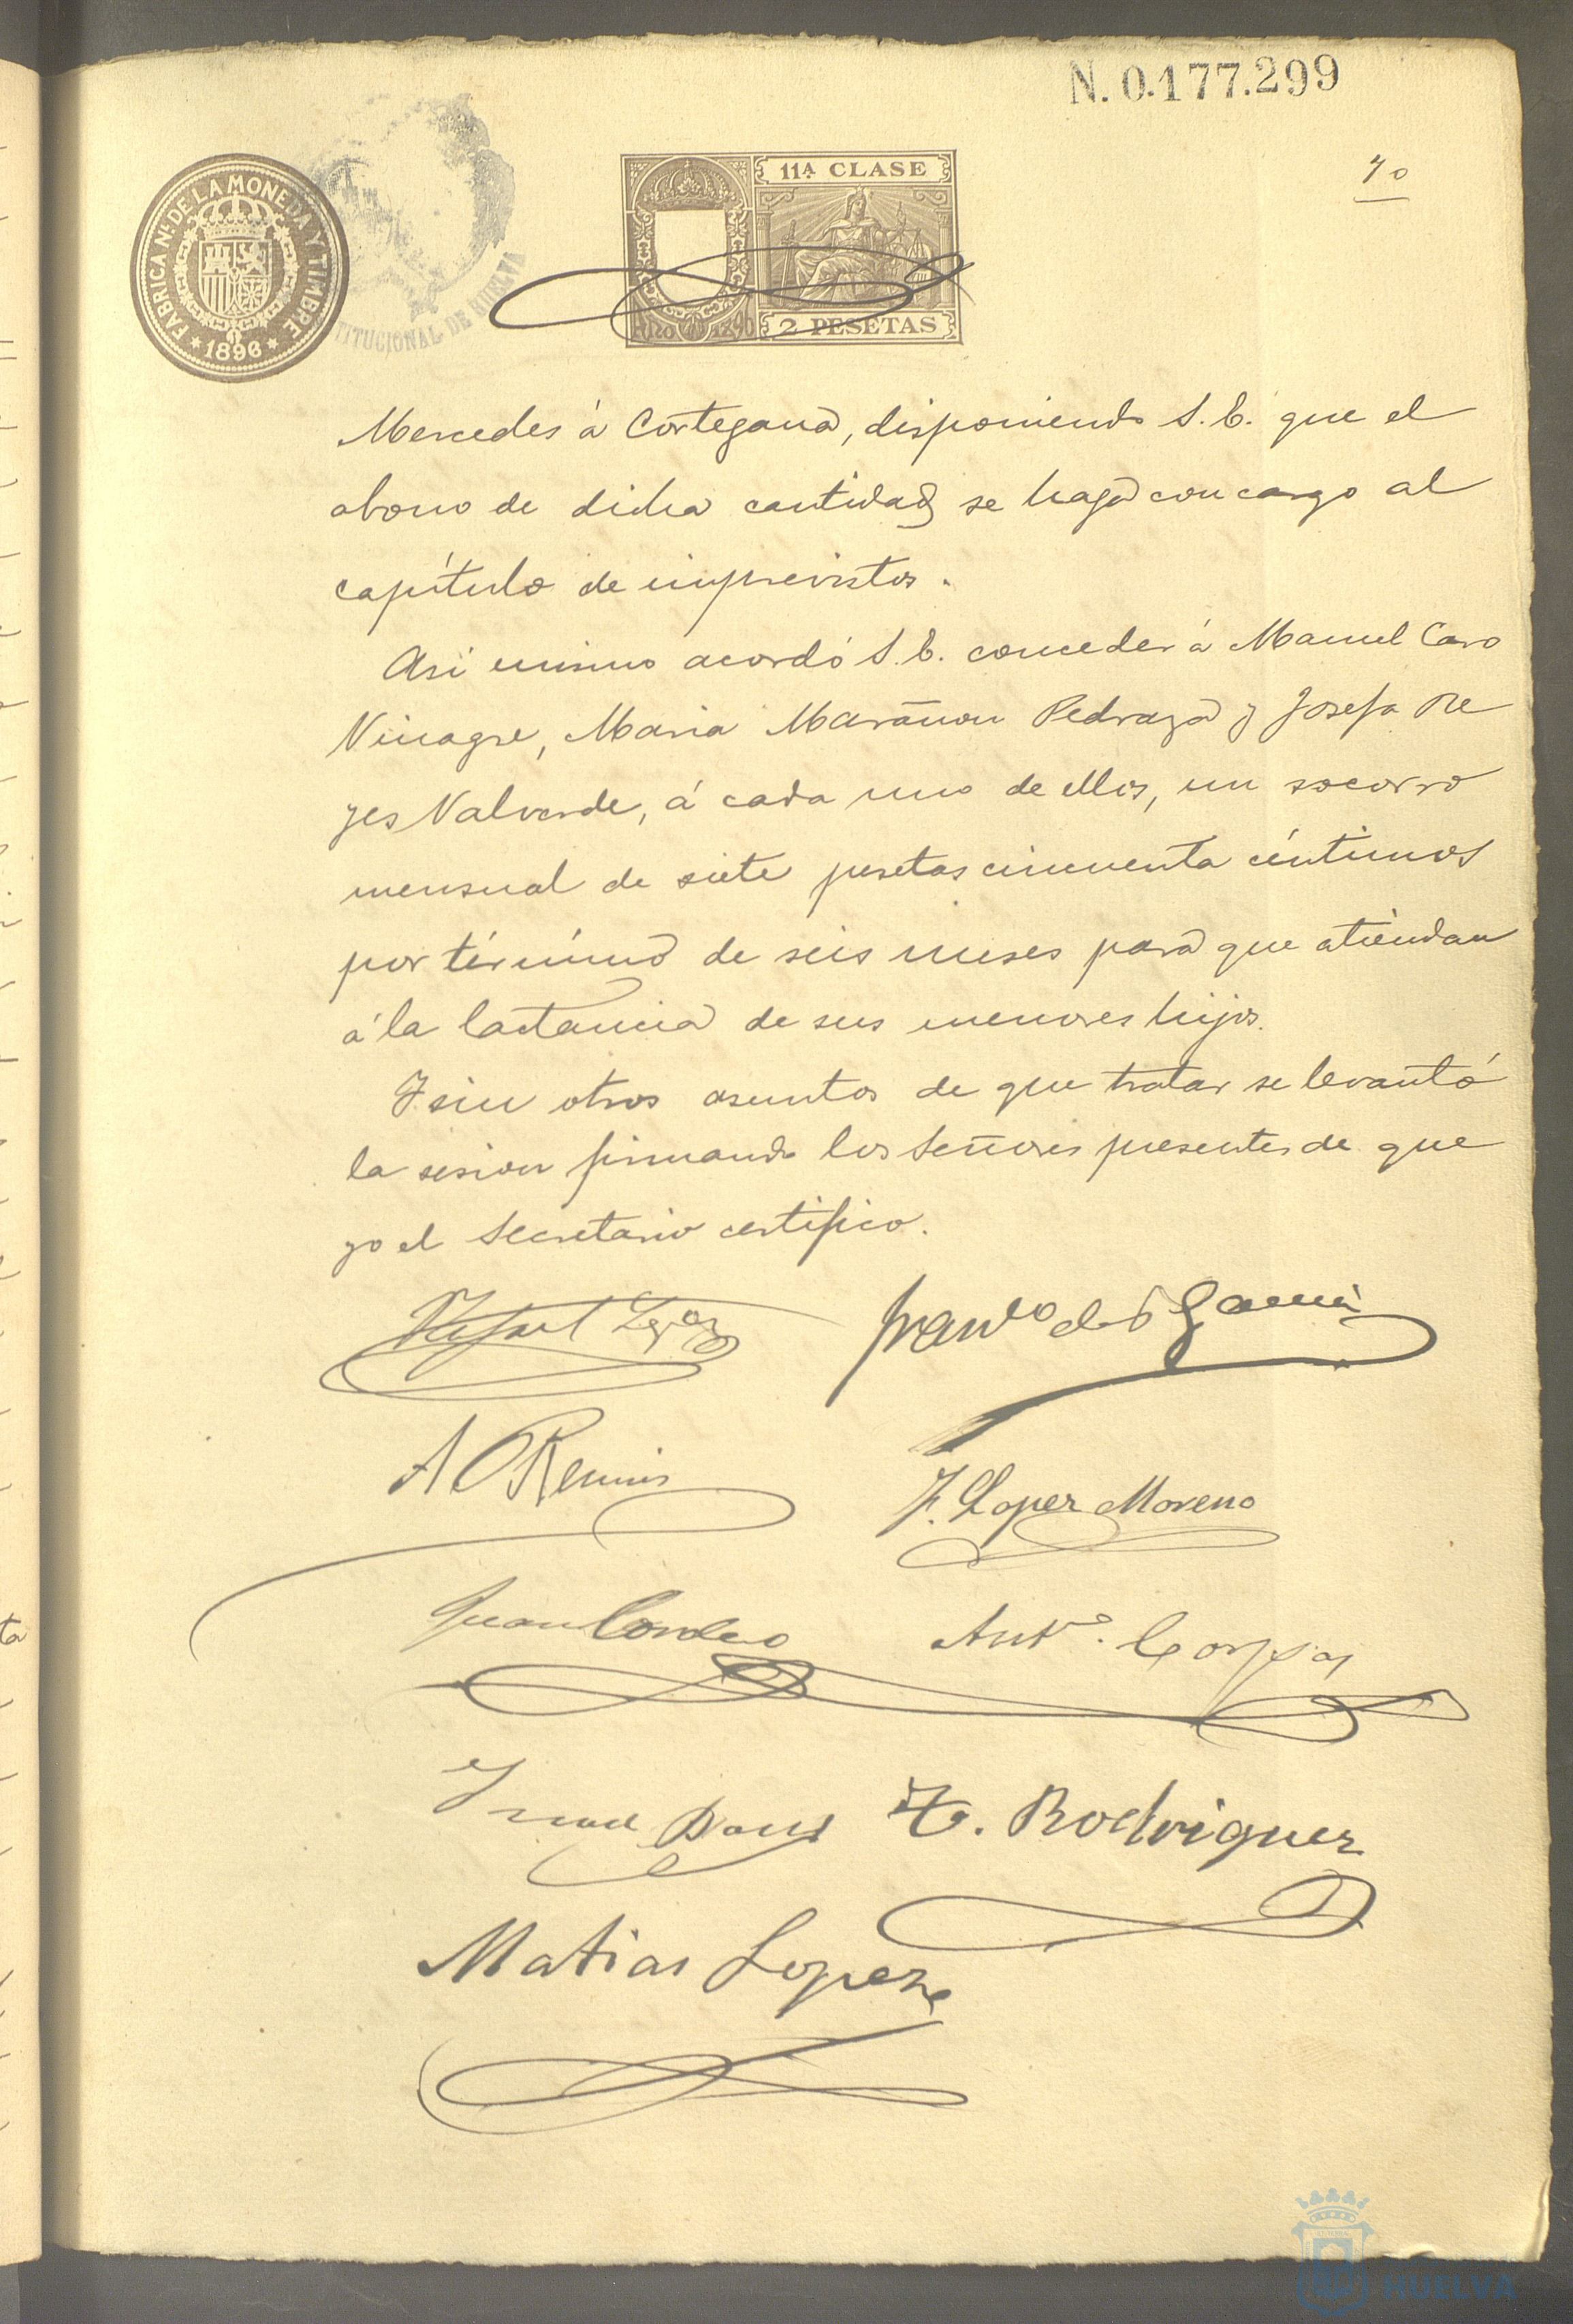 N. 0.177.299
FABRICA NL. DE LA MONEDA Y TIMBRE
* 1896 *
TITUCIONAL DE HUELVA
11A CLASE
Año 1896
2 PESETAS
40
Mercedes á Cortegana, disponiendo S. E. que el
abono de dicha cantidad se haga con cargo al
capítulo de imprevistos.
Asi mismo acordó S. E. conceder á Manuel Caro
Vinagre, Maria Marañon Pedraza y Josefa Re
yes Valverde, á cada uno de ellos, un socorro
mensual de siete pesetas cincuenta céntimos
por término de seis meses para que atiendan
á la lactancia de sus menores hijos.
Y sin otros asuntos de que tratar se levantó
la sesion firmando los Señores presentes de que
yo el Secretario certifico.
Rafael
Franco de P. Garcia
A
F. Lopez Moreno
Juan Cordero
Anto. Corpas
F. Rodriguez
Matias Lopez
HUELVA